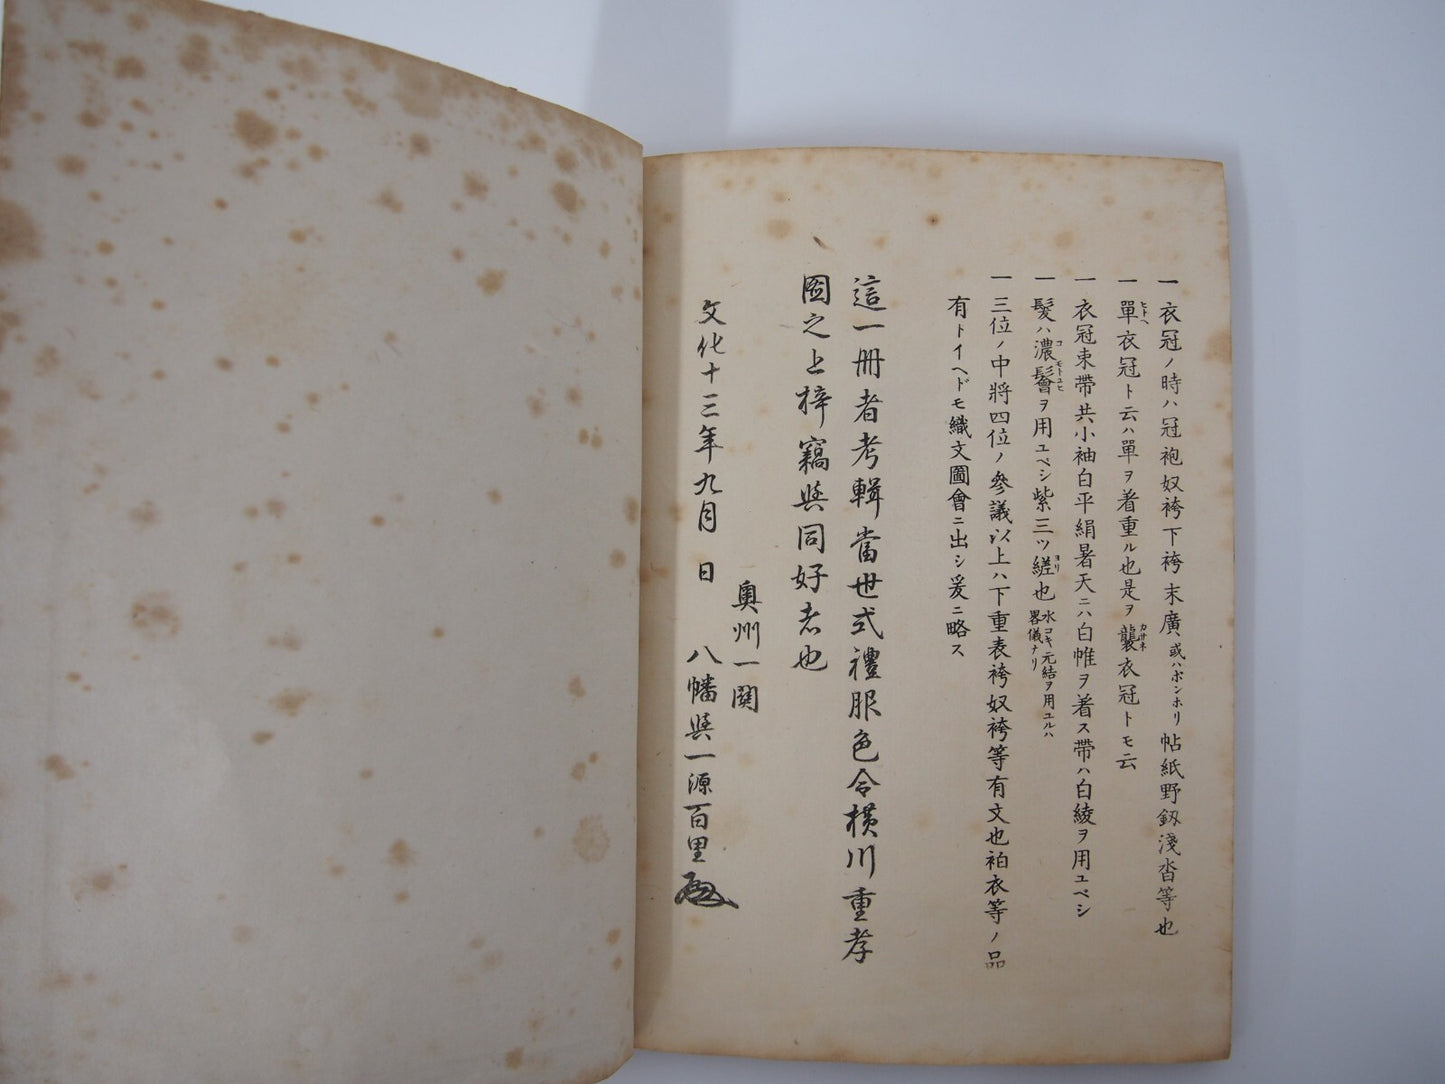 一 衣冠ノ時ハ冠袍奴袴下袴末廣或ハボンホリ帖紙野釼淺沓等也
一 單衣冠ト云ハ單ヲ着重ル也是ヲ襲衣冠トモ云
ヒトヘ
カサネ
一 衣冠束帶共小袖白平絹暑天ニハ白帷ヲ着ス帶ハ白綾ヲ用ユベシ
一 髮ハ濃鬠ヲ用ユベシ紫三ツ縒也水コキ元結ヲ用ユルハ畧儀ナリ
コモトユヒ
ヨリ
一 三位ノ中將四位ノ參議以上ハ下重表袴奴袴等有文也袙衣等ノ品
有トイヘドモ織文圖會ニ出シ爰ニ略ス
這一冊者考輯當世式禮服色令横川重孝
圖之上梓竊與同好者也
文化十三年九月 日
奧州一関
八幡與一源百里